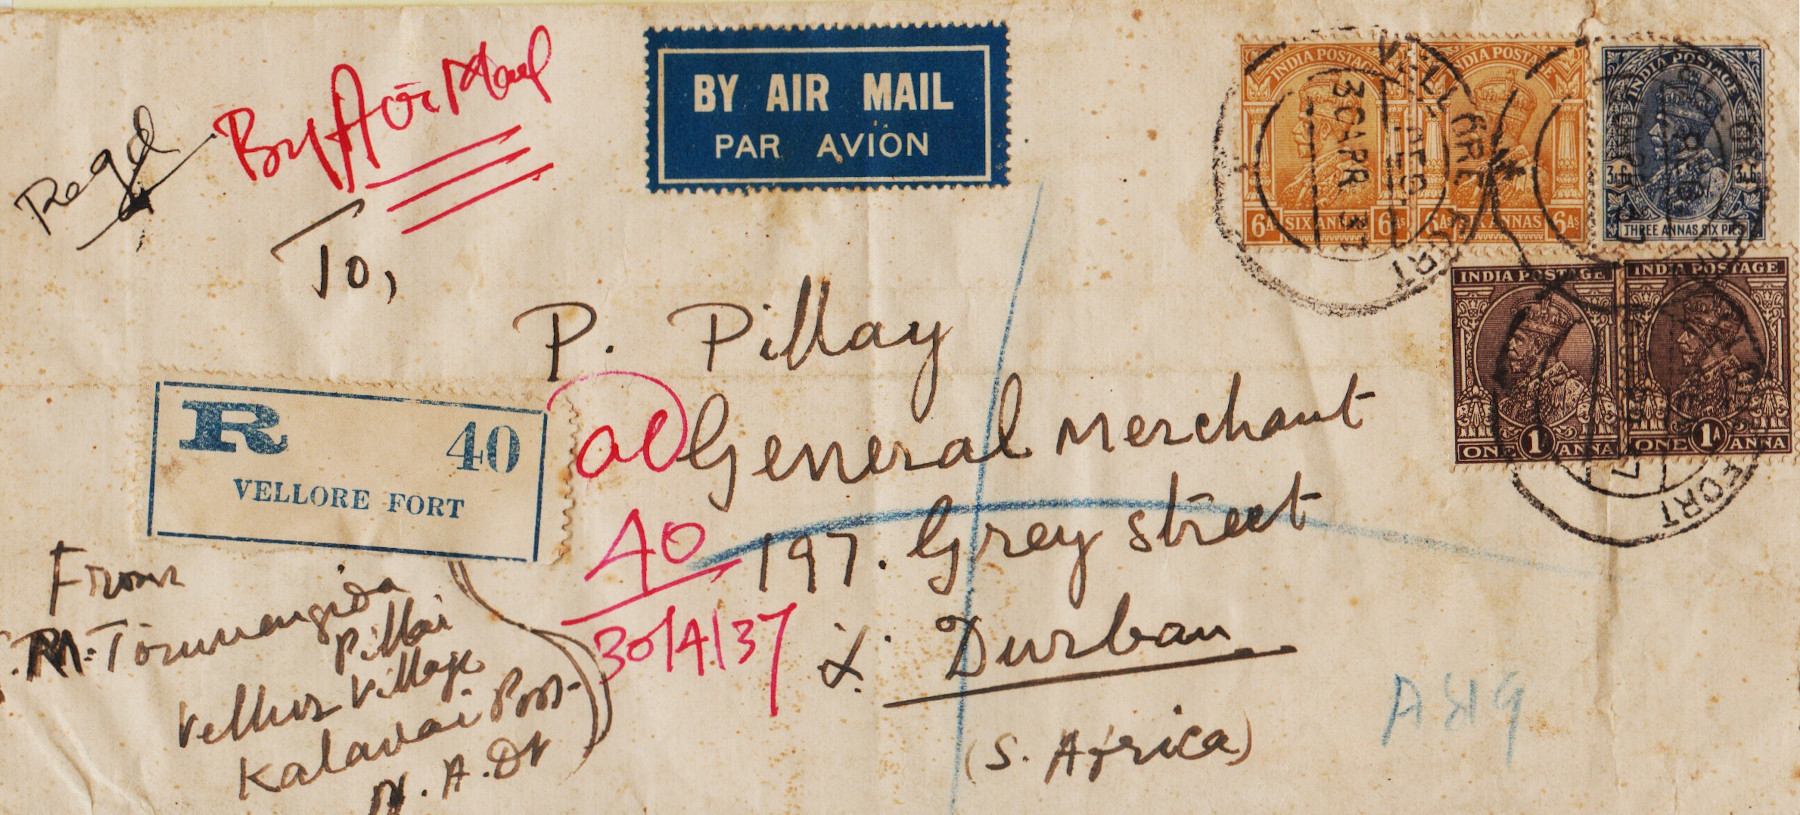 Regd
By Air Mail
BY AIR MAIL
PAR AVION
To,
INDIA POSTAGE
6As SIX ANNAS 6As
INDIA POSTAGE
6As SIX ANNAS 6As
INDIA POSTAGE
3As6p 3As6p
THREE ANNAS SIX PIES
VELLORE FORT
REG
30 APR 37
INDIA POSTAGE
ONE 1A ANNA
INDIA POSTAGE
ONE 1A ANNA
FORT
P. Pillay
General Merchant
197. Grey street
Durban
(S. Africa)
R 40
VELLORE FORT
40
30/4/37
From
Pillai
Village
Kalavai Post
N. A. Dt